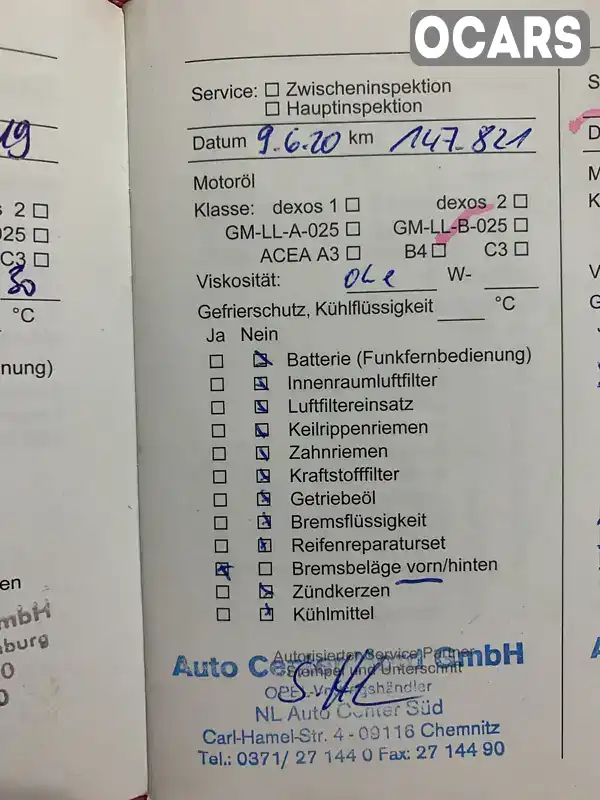 OCARS
Service: ☐ Zwischeninspektion
☐ Hauptinspektion
Datum 9.6.20 km 147.821
Motoröl
Klasse: dexos 1 ☐ dexos 2 ☐
GM-LL-A-025 ☐ GM-LL-B-025 ☐
ACEA A3 ☐ B4 ☐ C3 ☐
Viskosität: W-
Gefrierschutz, Kühlflüssigkeit °C
Ja Nein
☐ ☒ Batterie (Funkfernbedienung)
☐ ☒ Innenraumluftfilter
☐ ☒ Luftfiltereinsatz
☐ ☒ Keilrippenriemen
☐ ☒ Zahnriemen
☐ ☒ Kraftstofffilter
☐ ☒ Getriebeöl
☐ ☒ Bremsflüssigkeit
☐ ☒ Reifenreparaturset
☒ ☐ Bremsbeläge vorn/hinten
☐ ☒ Zündkerzen
☐ ☒ Kühlmittel
Autorisierter Service Partner
Stempel und Unterschrift
Auto GmbH
NL Auto Center Süd
Carl-Hamel-Str. 4 - 09116 Chemnitz
Tel.: 0371/ 27 144 0 Fax: 27 144 90
19
2 ☐
025 ☐
C3 ☐
30
°C
nung)
en
mbH
burg
0